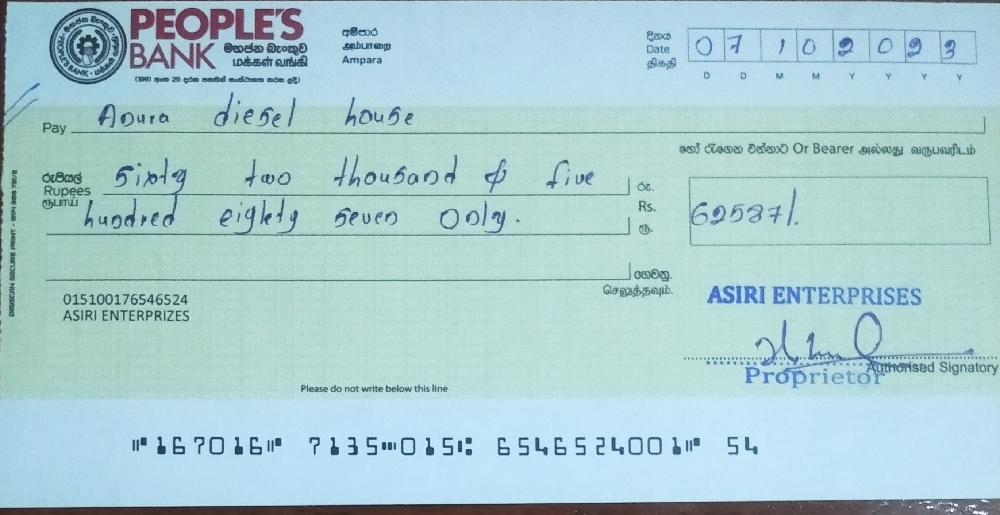 PEOPLE'S BANK
මහජන බැංකුව
மக்கள் வங்கி
(1961 අංක 29 දරන පනතින් සංස්ථාගත කරන ලදී)
අම්පාර
அம்பாறை
Ampara
දිනය
Date
திகதி
0 7 1 0 2 0 2 3
D D M M Y Y Y Y
Pay Anura diesel house
හෝ රැගෙන එන්නාට Or Bearer அல்லது வருபவரிடம்
රුපියල්
Rupees
ரூபாய்
Sixty two thousand & five
hundred eighty seven only.
රු.
Rs.
ரூ.
62587/.
ගෙවනු.
செலுத்தவும்.
015100176546524
ASIRI ENTERPRIZES
ASIRI ENTERPRISES
Proprietor
Authorised Signatory
Please do not write below this line
⑈167016⑈ 7135⑉015⑆ 6546524001⑈ 54